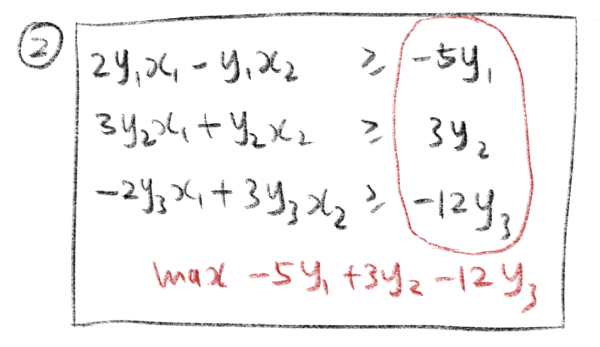 ②
2y₁x₁ - y₁x₂ ≥ -5y₁
3y₂x₁ + y₂x₂ ≥ 3y₂
-2y₃x₁ + 3y₃x₂ ≥ -12y₃
max -5y₁ + 3y₂ - 12y₃